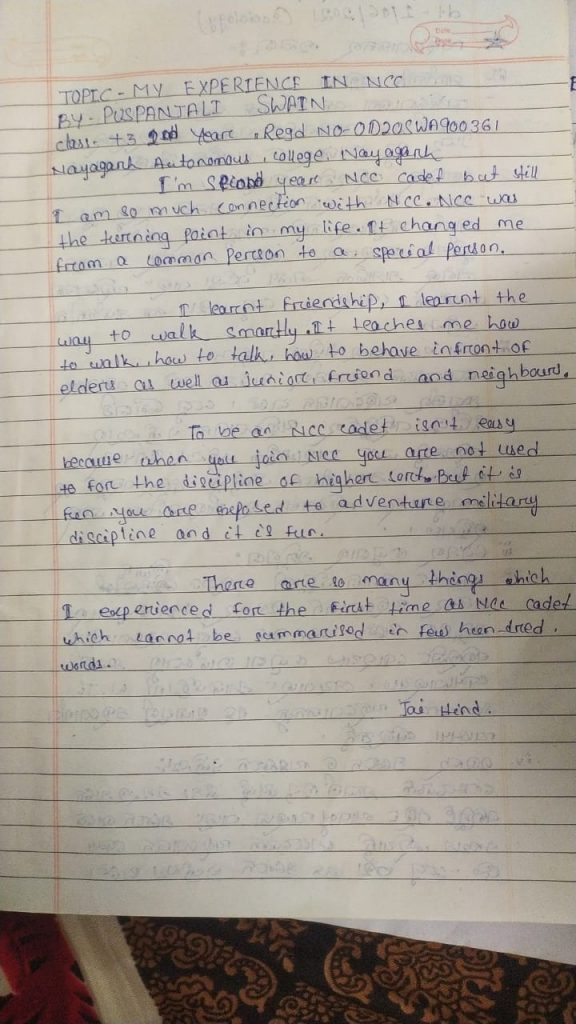 TOPIC - MY EXPERIENCE IN NCC
BY - PUSPANJALI SWAIN
class - +3 2nd Year . Regd NO - OD20SWA900361
Nayagarh Autonomous , college, Nayagarh
I'm Second year NCC cadet but still
I am so much connection with NCC. NCC was
the turning point in my life. It changed me
from a common person to a special person.
I learnt friendship, I learnt the
way to walk smartly. It teaches me how
to walk, how to talk, how to behave infront of
elders as well as junior, friend and neighbours.
To be an NCC cadet isn't easy
because when you join NCC you are not used
to for the discipline of higher sort. But it is
fun you are exposed to adventure military
discipline and it is fun.
There are so many things which
I experienced for the first time as NCC cadet
which cannot be summarised in few hun-dred.
words.
Jai Hind.